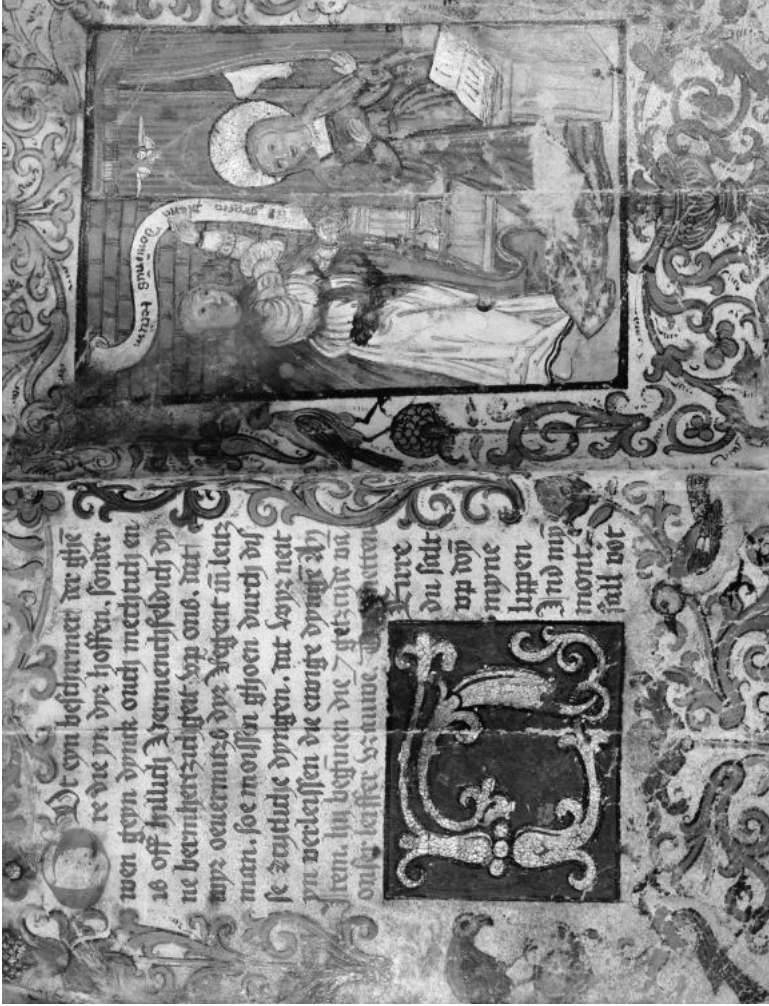 gracia plena
Dominus tecum
Ot eyn beschirmer der ghē
re die yn dyr hoffen, sonder
wen geyn dynck ouch mechtich en
is off hillich Vermenchfeldich dy
ne bermhertzichgeit vp ons. dat
wyr oeuermitz dyr Regent īn leitz
man. soe moissen ghoen durch dis
se zeytliche dyngen. dat wyr neit
yn verleissen die ewige dynge
Item. hii begynnen die 7 getzijde vā
onser leiffer vrauwe metten
du salt
vp doy
myne
lippen
Ind my
mont
sall vort